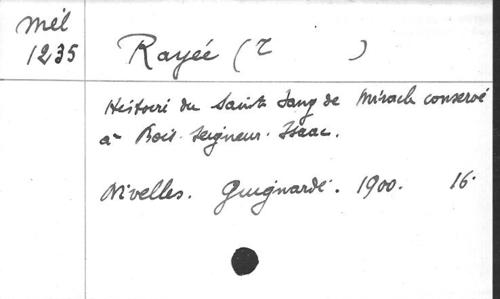 Mél
1235
Rayée (T )
Histoire du Saint Sang de Miracle conservé
à Bois-Seigneur-Isaac.
Nivelles. Guignardé. 1900. 16.